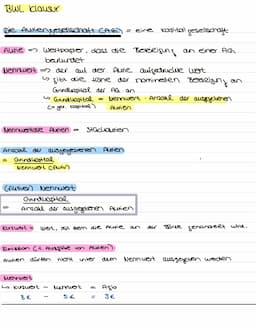 BWL Klausur
Die Aktiengesellschaft (AG) = eine Kapitalgesellschaft
Aktie => Wertpapier, dass die Beteiligung an einer AG
beurkundet
Nennwert => der auf der Aktie aufgedruckte Wert
↳ gibt die Höhe der nominellen Beteiligung am
Grundkapital der AG an
↳ Grundkapital = Nennwert · Anzahl der ausgegebenen
(= gez. Kapital) Aktien
Nennwertlose Aktien = Stückaktien
Anzahl der ausgegebenen Aktien
= Grundkapital
Nennwert (Aktie)
(Aktien) Nennwert
Grundkapital
= Anzahl der ausgegebenen Aktien
Kurswert = Wert, zu dem die Aktie an der Börse gehandelt wird.
Emission (= Ausgabe von Aktien)
Aktien dürfen nicht unter dem Nennwert ausgegeben werden
↳ Kurswert - Nennwert = Agio
8€ - 5€ = 3€